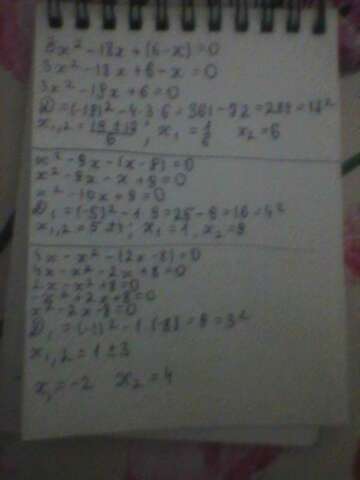 3x² - 18x + (6-x) = 0
3x² - 18x + 6 - x = 0
3x² - 19x + 6 = 0
D = (-19)² - 4·3·6 = 361 - 72 = 289 = 17²
x₁,₂ = (19 ± 17)/6 ; x₁ = 1/6 x₂ = 6
x² - 8x - (x-8) = 0
x² - 8x - x + 8 = 0
x² - 10x + 9 = 0
D₁ = (-5)² - 1·9 = 25 - 9 = 16 = 4²
x₁,₂ = 5 ± 4 ; x₁ = 1, x₂ = 9
4x - x² - (2x-8) = 0
4x - x² - 2x + 8 = 0
2x - x² + 8 = 0
-x² + 2x + 8 = 0
x² - 2x - 8 = 0
D₁ = (-1)² - 1·(-8) = 9 = 3²
x₁,₂ = 1 ± 3
x₁ = -2 x₂ = 4